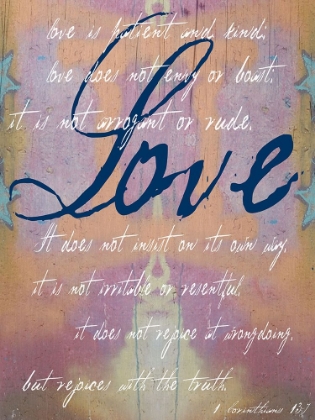 love is patient and kind;
love does not envy or boast;
it is not arrogant or rude.
Love
It does not insist on its own way;
it is not irritable or resentful;
it does not rejoice at wrongdoing,
but rejoices with the truth.
1 Corinthians 13:7